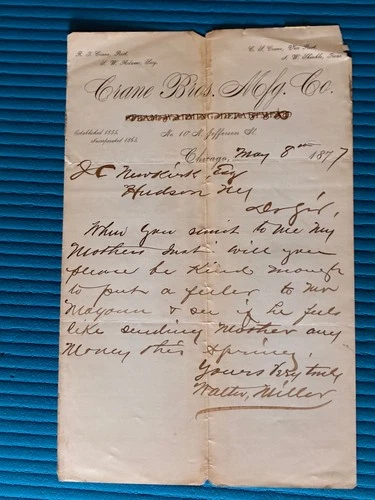 R. T. Crane, Prest.
C. S. Crane, Vice Prest.
Crane Bros. Mfg. Co.
Established 1855.
Incorporated 1865.
No. 10 N. Jefferson St.
Chicago, May 8th 1877
J C Newkirk, Esq
Hudson NY
Dr Sir,
When you remit to me my
Mothers Inst. will you
please be kind enough
to put a feeler to Mr
& see if he feels
like sending Mother any
Money this Spring.
Yours very truly
Walter, Miller